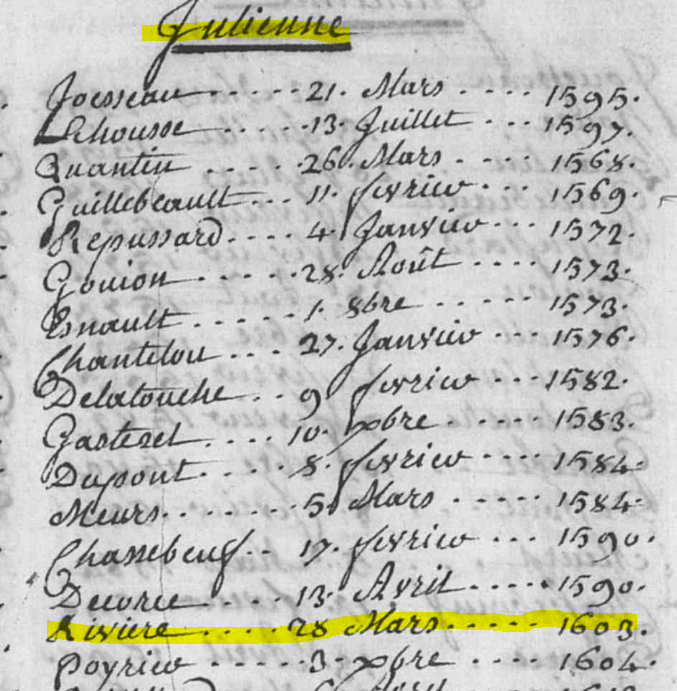 Julienne
Joesseau 21. Mars 1595.
Lehousse 13. Juillet 1597.
Quantin 26. Mars 1568.
Guillebeault 11. fevrier 1569.
Repussard 4. Janvier 1572.
Gouion 28. Août 1573.
Esnault 1. 8bre 1573.
Chantelou 27. Janvier 1576.
Delatouche 9 fevrier 1582.
Gasteset 10. xbre 1583.
Dupont 8. fevrier 1584.
Meurs 5. Mars 1584.
Chassebeuf 17. fevrier 1590.
Decorce 13. Avril 1590.
Riviere 28 Mars 1603.
Poyrier 3. xbre 1604.